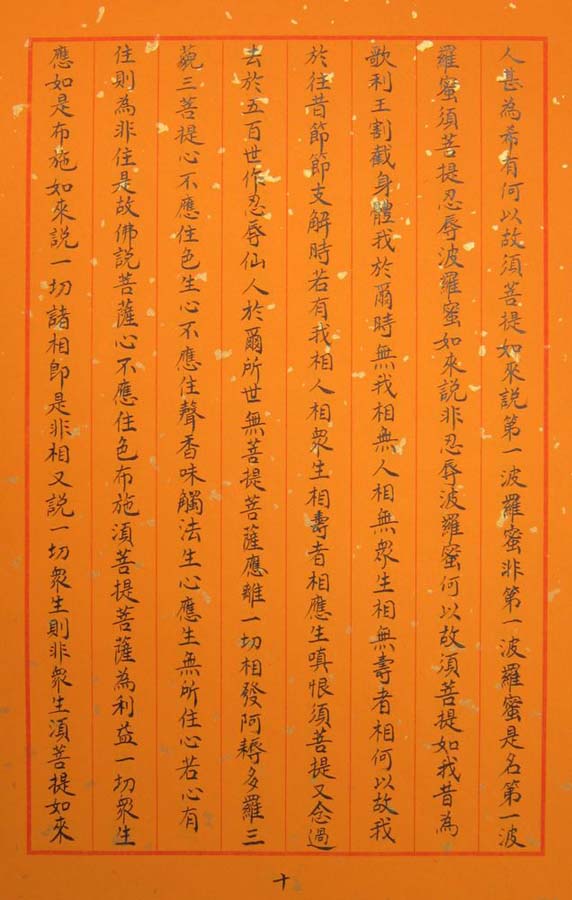 人甚為希有何以故須菩提如來說第一波羅蜜非第一波羅蜜是名第一波
羅蜜須菩提忍辱波羅蜜如來說非忍辱波羅蜜何以故須菩提如我昔為
歌利王割截身體我於爾時無我相無人相無衆生相無壽者相何以故我
於往昔節節支解時若有我相人相衆生相壽者相應生嗔恨須菩提又念過
去於五百世作忍辱仙人於爾所世無菩提菩薩應離一切相發阿耨多羅三
藐三菩提心不應住色生心不應住聲香味觸法生心應生無所住心若心有
住則為非住是故佛說菩薩心不應住色布施須菩提菩薩為利益一切衆生
應如是布施如來說一切諸相即是非相又說一切衆生則非衆生須菩提如來
十